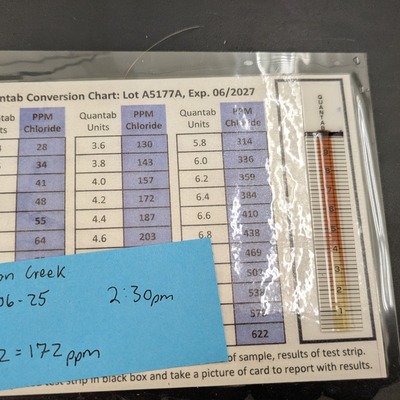 ntab Conversion Chart: Lot A5177A, Exp. 06/2027
its PPM Chloride Quantab Units PPM Chloride Quantab Units PPM Chloride
28 3.6 130 5.8 314
34 3.8 143 6.0 336
41 4.0 157 6.2 359
48 4.2 172 6.4 384
55 4.4 187 6.6 410
64 4.6 203 438
469
622
on Creek
06-25 2:30pm
2 = 172 ppm
of sample, results of test strip.
test strip in black box and take a picture of card to report with results.
QUANTA
1